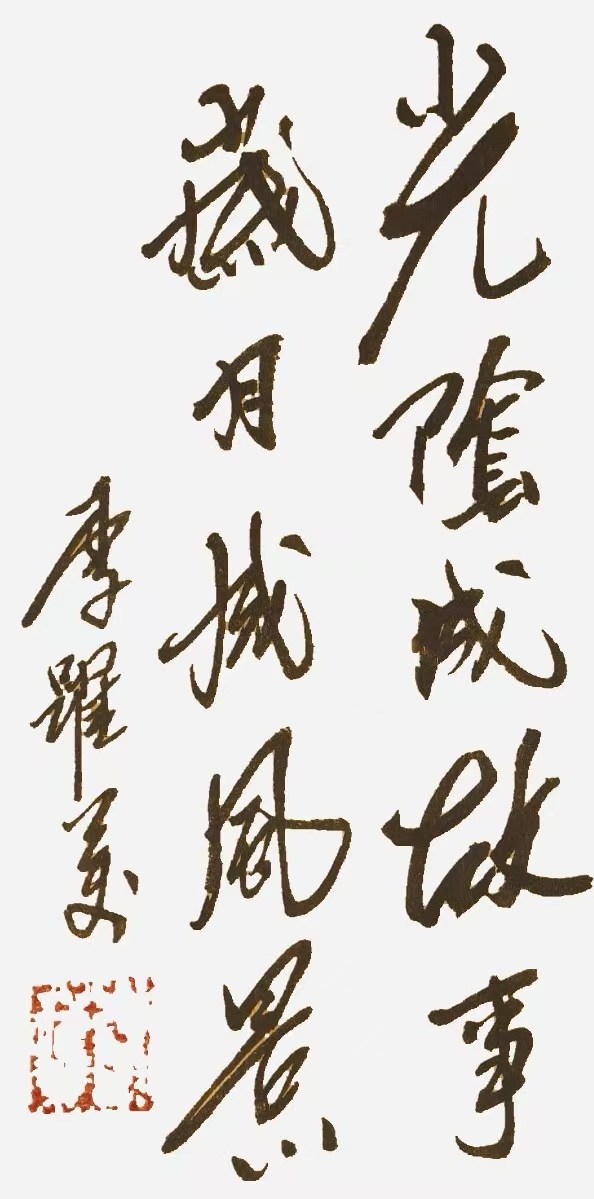 光陰成故事
歲月城風景
李躍美